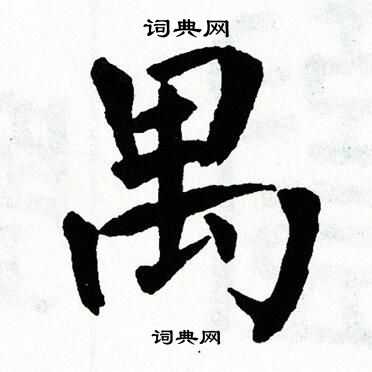 词典网
禺
词典网